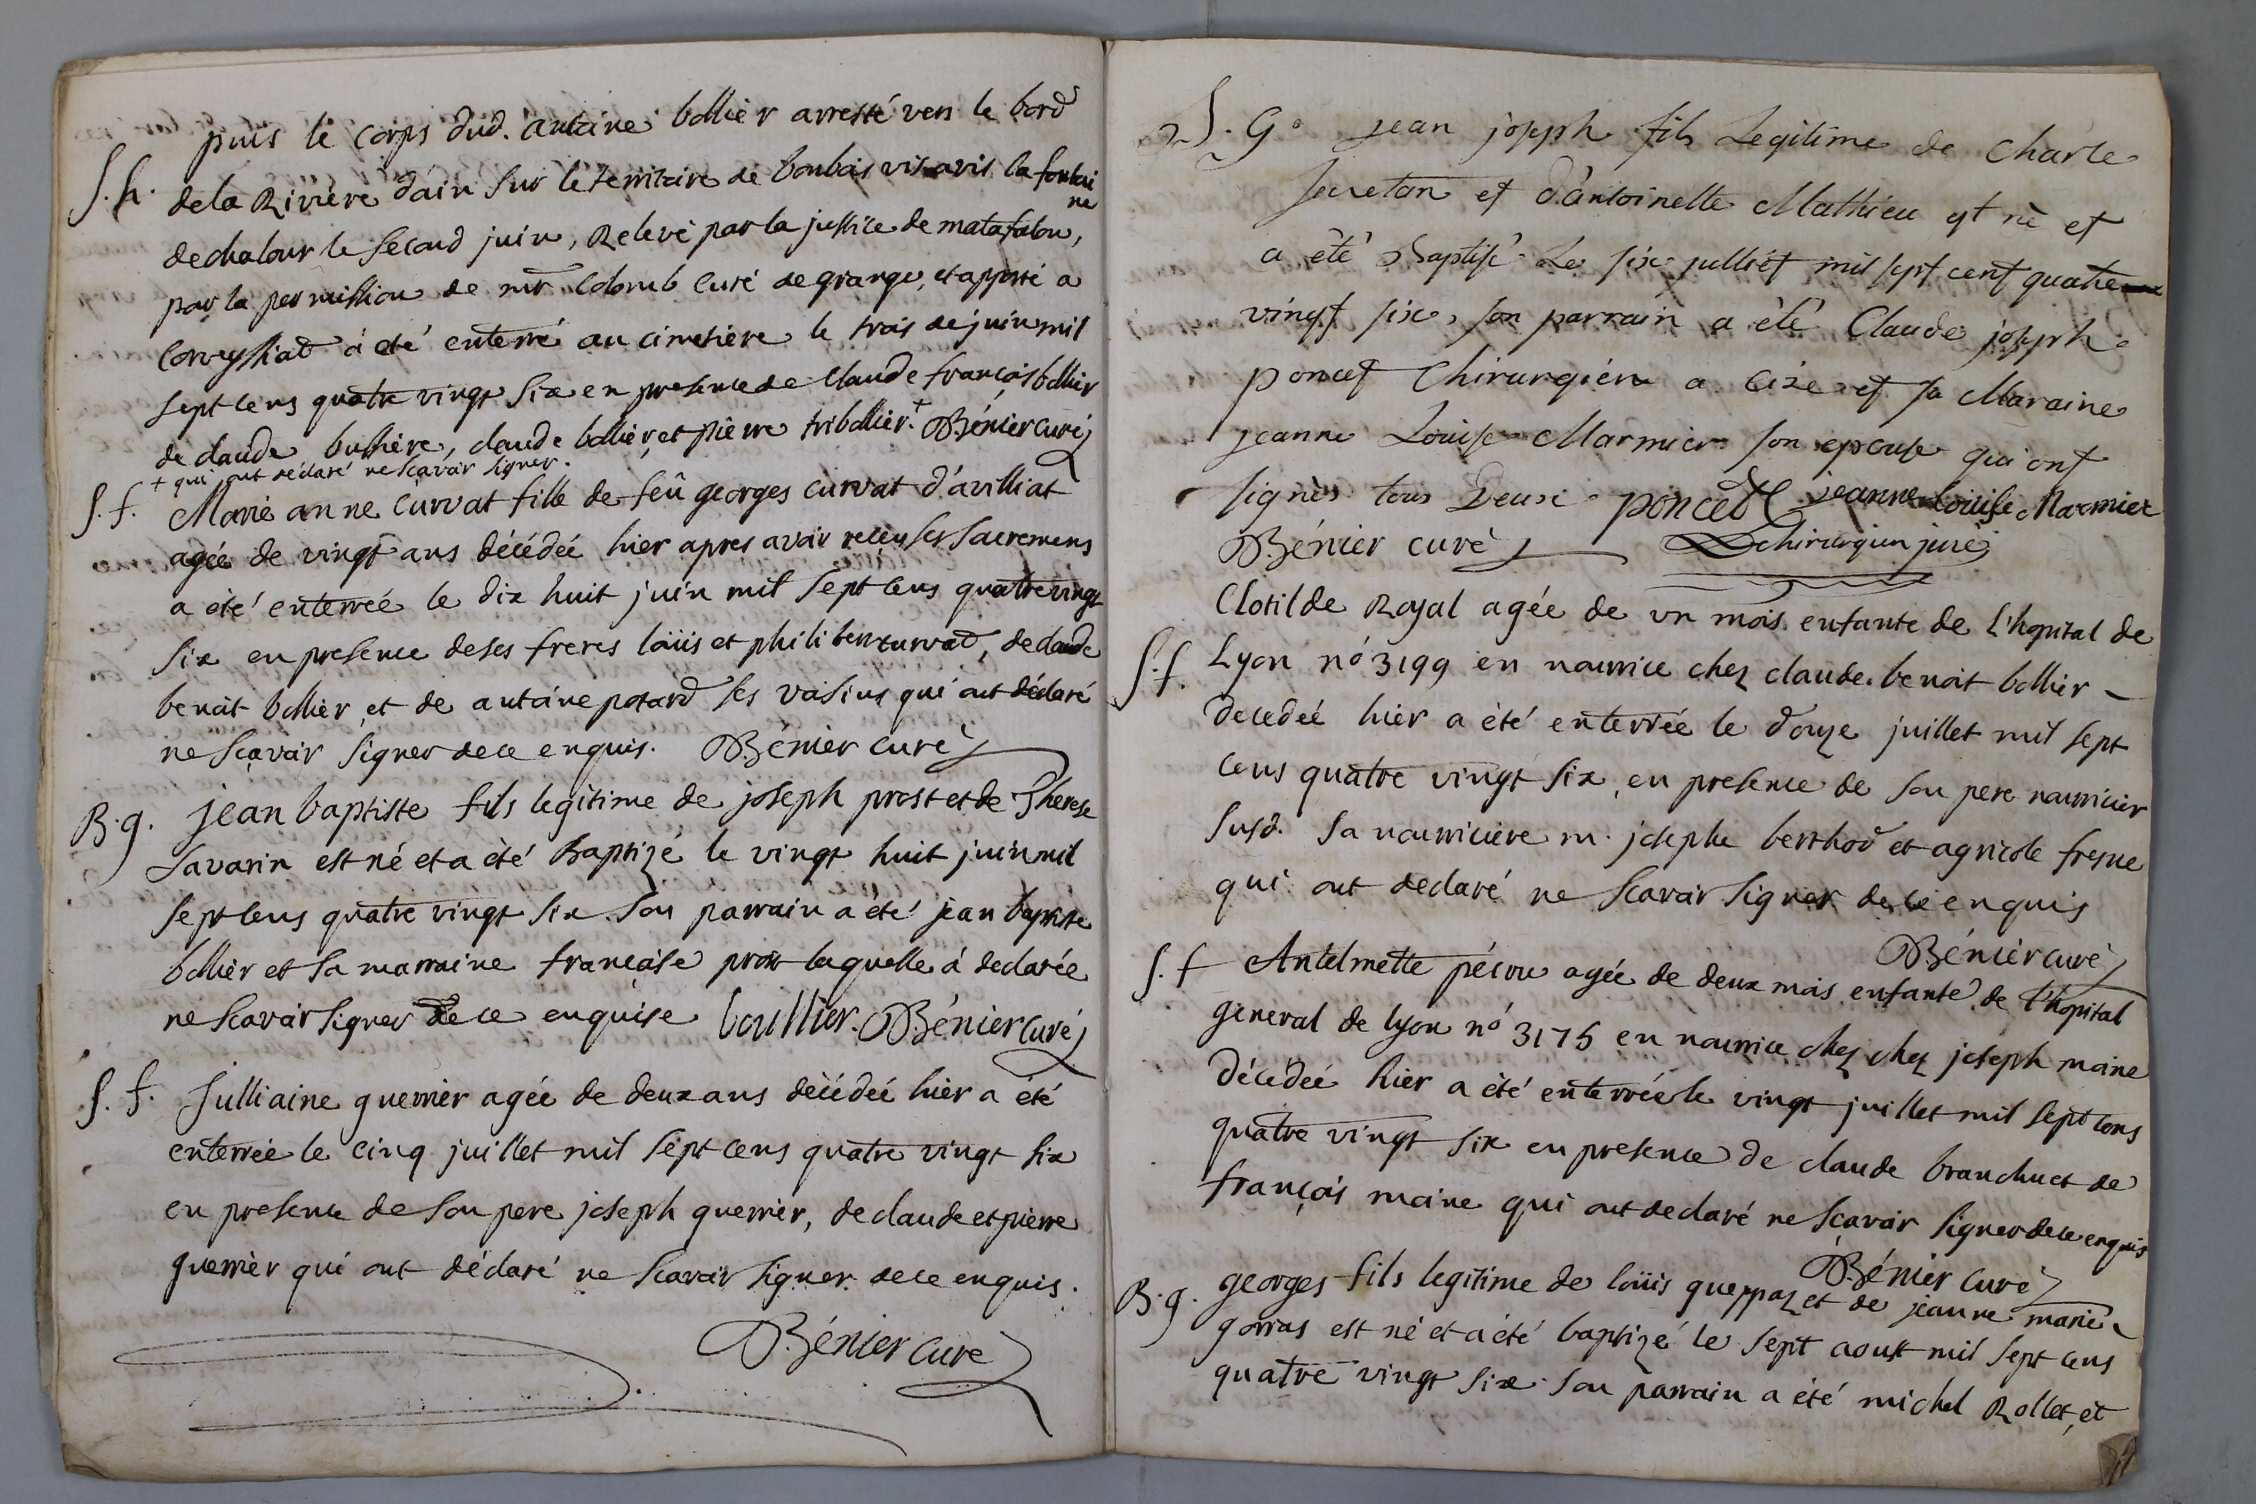 puis le corps dud. antoine bollier arresté vers le bord
S. h. dela Riviere d'ain sur le territoire de bombois vis avis la fontai
ne
de chalour le second juin, Relevé par la justice de matafalon,
par la permission de mr Colomb curé de grange, et apporté a
Corveyssiat à eté enterré au cimetière le trois de juin mil
sept cens quatre vingt six en presence de Claude françois bollier
de claude bussiere, claude bollier, et pierre tribollier.+ Bénier curé
+ qui ont déclaré ne scavoir signer.
S. f. Marie anne curvat fille de feû georges curvat d'avilliat
agée de vingt ans décédée hier apres avoir reçu ses sacremens
a été enterreé le dix huit juin mil sept cens quatre vingt
six en presence de ses freres loüis et philibert curvat, de claude
benoit bollier et de antoine potard ses voisins qui ont déclaré
ne sçavoir signer de ce enquis. Bénier curé
B. g. jean baptiste fils legitime de joseph prost et de Therese
Savarin est né et a été Baptizé le vingt huit juin mil
sept cens quatre vingt six. son parrain a été jean baptiste
bollier et sa marraine françoise prost laquelle à declarée
ne scavoir signer de ce enquise boullier. Bénier curé
S. f. Julliaine guerrier agée de deux ans décédeé hier a été
enterrée le cinq juillet mil sept cens quatre vingt six
en presence de son pere joseph guerrier, de claude et pierre
guerrier qui ont déclaré ne scavoir signer de ce enquis.
Bénier curé
B. G. jean joseph fils Legitime de Charle
secretan et d'antoinette Mathieu est nè et
a été Baptisé Le six julliet mil sept cent quatre
vingt six, son parrain a été Claude joseph
poncet Chirurgien a Cize et sa Maraine
jeanne Louise Marmier son epouse qui ont
signès tous Deux poncet jeanne Louise Marmier
Bénier curé Chirurgien juré
Clotilde Royal agée de un mois enfante de l'hopital de
S. f. Lyon nó 3199 en nourrice chez claude benoit bollier
decedeé hier a été enterrée le douze juillet mil sept
cens quatre vingt six, en presence de son pere nourricier
susd. sa nourriciere m. josephe berthod et agricole fresne
qui ont declaré ne scavoir signer de ce enquis
Bénier curé
S. f Antelmette pérou agée de deux mois enfante de l'hopital
general de lyon nó 3175 en nourrice chez chez joseph moine
décédeé hier a été enterrée le vingt juillet mil sept cens
quatre vingt six en presence de claude branchu et de
françois moine qui ont declaré ne sçavoir signer de ce enquis
Bénier curé
B. g. georges fils legitime de loüis gueppaz et de jeanne marie
gorras est né et a été baptizé le sept aoust mil sept cens
quatre vingt six. son parrain a été michel Rollet, et